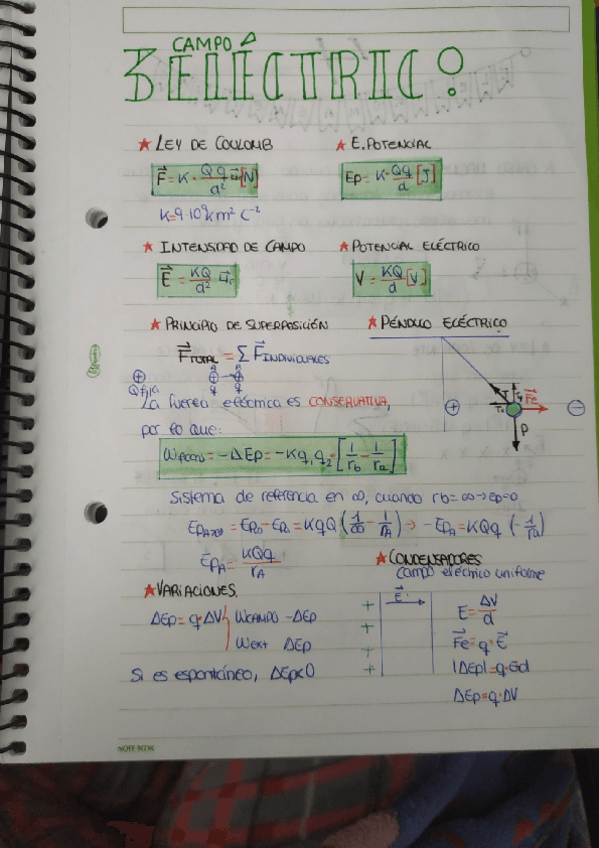 3 CAMPO ELÉCTRICO
★ LEY DE COULOMB
F⃗ = K · Qq/d² u⃗r [N]
K=9·10⁹ N m² C⁻²
★ E. POTENCIAL
Ep = K · Qq/d [J]
★ INTENSIDAD DE CAMPO
E⃗ = KQ/d² u⃗r
★ POTENCIAL ELÉCTRICO
V = KQ/d [V]
★ PRINCIPIO DE SUPERPOSICIÓN
F⃗TOTAL = Σ F⃗INDIVIDUALES
★ PÉNDULO ELÉCTRICO
+ T Fe −
P
La fuerza eléctrica es CONSERVATIVA,
por lo que:
= −ΔEp = −K q₁ q₂ · [1/rb − 1/ra]
Sistema de referencia en ∞, cuando rb = ∞ → Ep=0
= KqQ (1/∞ − 1/rA) → −EpA = KQq (−1/ra)
EpA = KQq/rA
★ VARIACIONES.
ΔEp = q·ΔV
WCAMPO −ΔEp
Wext ΔEp
Si es espontáneo, ΔEp<0
★ CONDENSADORES
campo eléctrico uniforme
+ E⃗
+
+
+
E = ΔV/d
F⃗e = q · E⃗
|ΔEp| = q·Ed
ΔEp = q·ΔV
NOTE BOOK